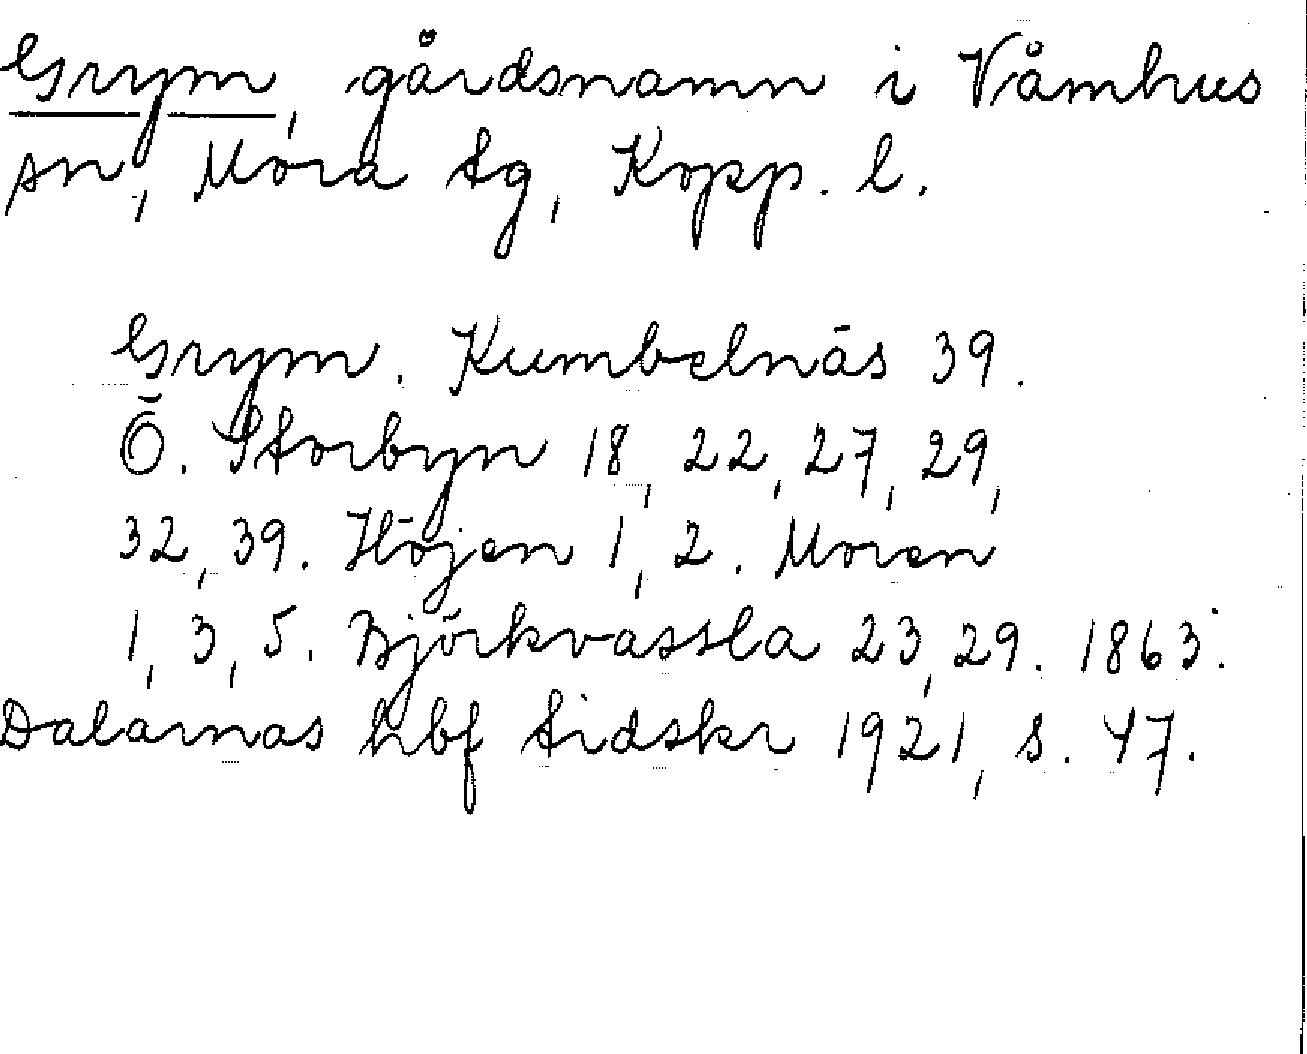 Grym, gårdsnamn i Våmhus
sn, Mora tg, Kopp. l.
Grym. Kumbelnäs 39.
Ö. Storbyn 18, 22, 27, 29,
32, 39. Höjen 1, 2. Moren
1, 3, 5. Björkvassla 23, 29. 1863.
Dalarnas hbf tidskr 1921, s. 47.